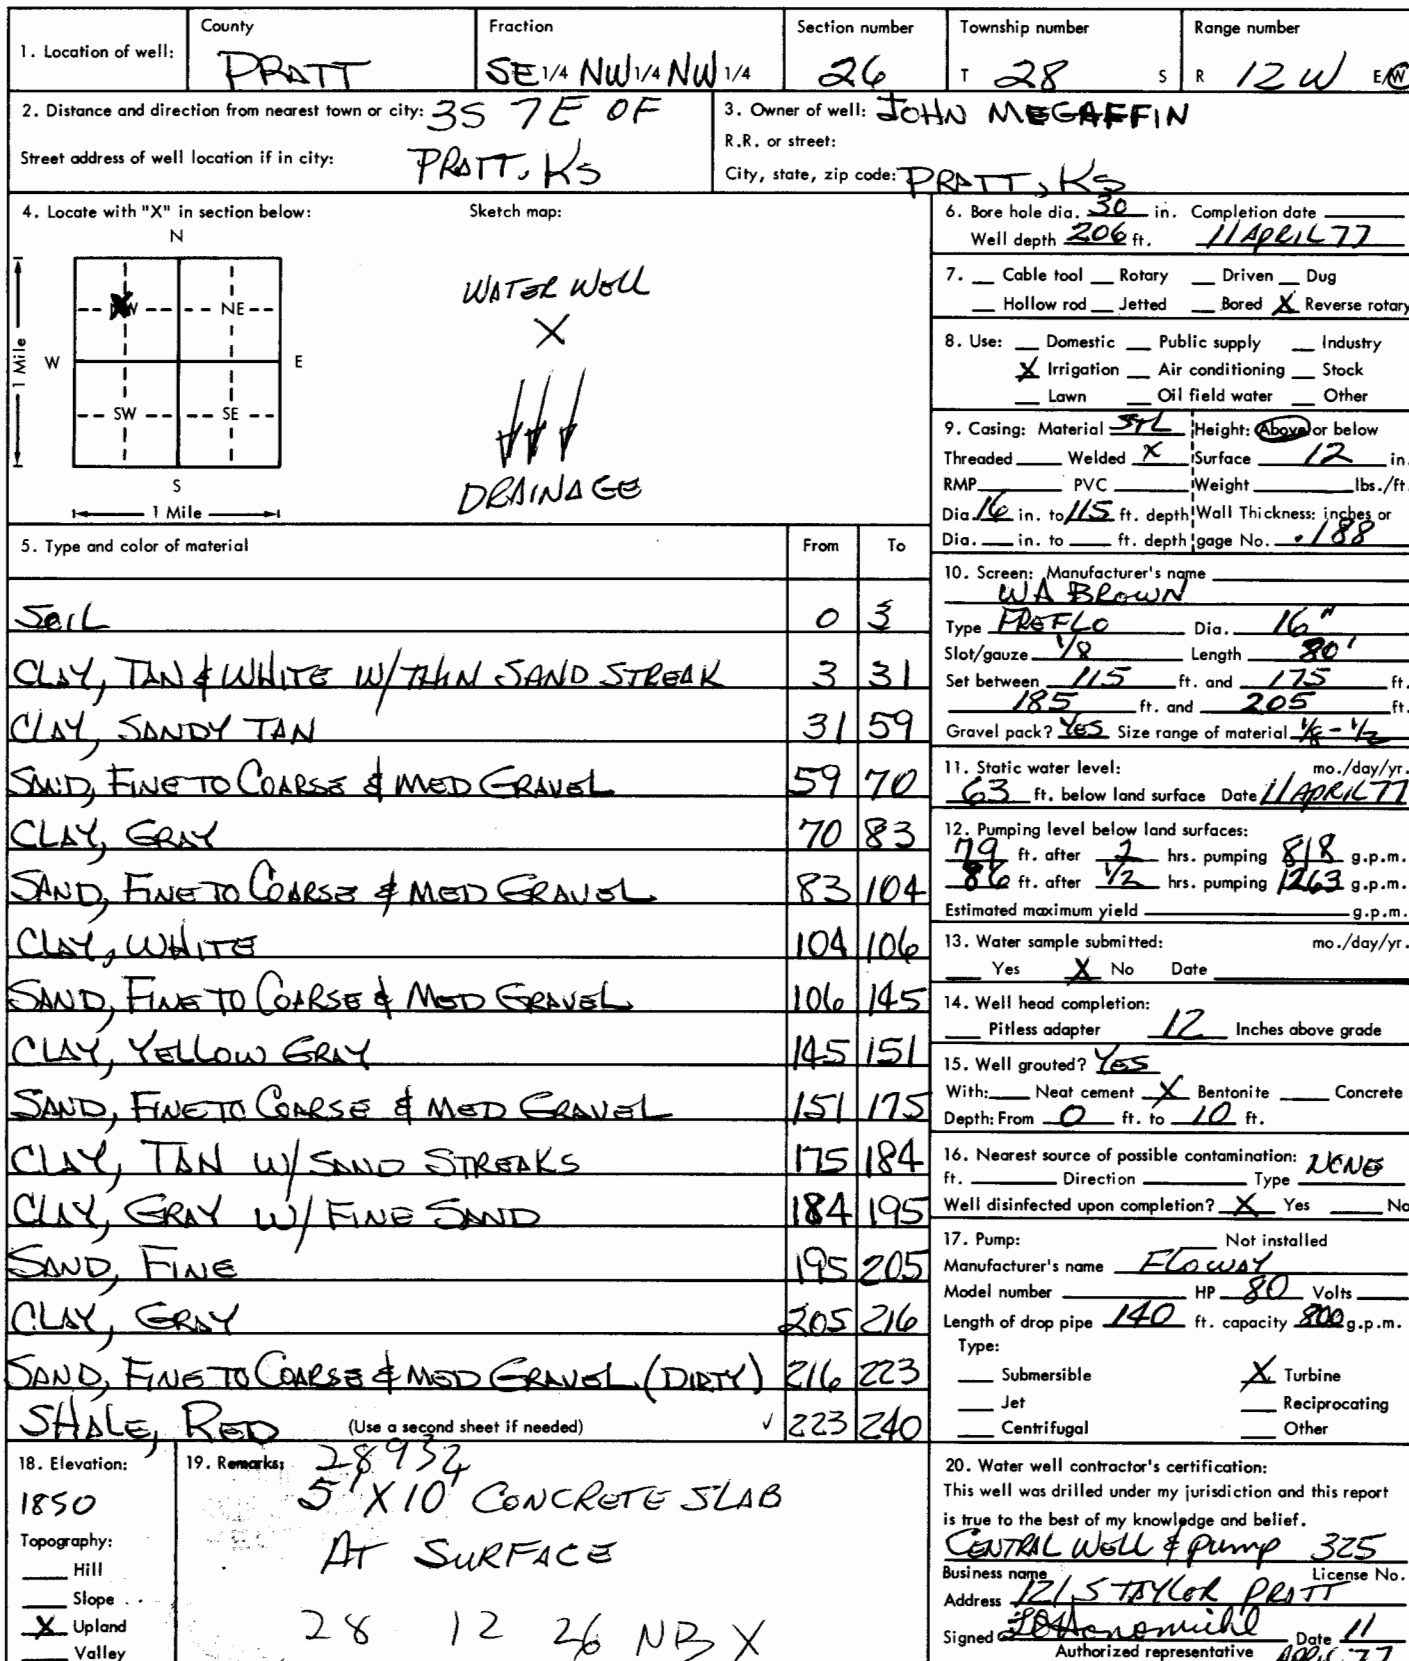 1. Location of well: County PRATT Fraction SE 1/4 NW 1/4 NW 1/4 Section number 26 Township number T 28 S Range number R 12 W E/W
2. Distance and direction from nearest town or city: 3S 7E OF
Street address of well location if in city: PRATT, KS
3. Owner of well: JOHN MEGAFFIN
R.R. or street:
City, state, zip code: PRATT, KS
4. Locate with "X" in section below: Sketch map:
N
NW NE
W E
SW SE
S
1 Mile
1 Mile
WATER WELL
X
DRAINAGE
5. Type and color of material From To
SOIL 0 3
CLAY, TAN & WHITE W/THIN SAND STREAK 3 31
CLAY, SANDY TAN 31 59
SAND, FINE TO COARSE & MED GRAVEL 59 70
CLAY, GRAY 70 83
SAND, FINE TO COARSE & MED GRAVEL 83 104
CLAY, WHITE 104 106
SAND, FINE TO COARSE & MED GRAVEL 106 145
CLAY, YELLOW GRAY 145 151
SAND, FINE TO COARSE & MED GRAVEL 151 175
CLAY, TAN W/ SAND STREAKS 175 184
CLAY, GRAY W/ FINE SAND 184 195
SAND, FINE 195 205
CLAY, GRAY 205 216
SAND, FINE TO COARSE & MED GRAVEL (DIRTY) 216 223
SHALE, RED (Use a second sheet if needed) 223 240
6. Bore hole dia. 30 in. Completion date
Well depth 206 ft. 11 APRIL 77
7. Cable tool Rotary Driven Dug
Hollow rod Jetted Bored X Reverse rotary
8. Use: Domestic Public supply Industry
X Irrigation Air conditioning Stock
Lawn Oil field water Other
9. Casing: Material STL Height: Above or below
Threaded Welded X Surface 12 in.
RMP PVC Weight lbs./ft.
Dia. 16 in. to 115 ft. depth Wall Thickness: inches or
Dia. in. to ft. depth gage No. .188
10. Screen: Manufacturer's name
WA BROWN
Type FREFLO Dia. 16"
Slot/gauze 1/8 Length 80'
Set between 115 ft. and 175 ft.
185 ft. and 205 ft.
Gravel pack? YES Size range of material 1/8 - 1/2
11. Static water level: mo./day/yr.
63 ft. below land surface Date 11 APRIL 77
12. Pumping level below land surfaces:
79 ft. after 2 hrs. pumping 818 g.p.m.
86 ft. after 1/2 hrs. pumping 1263 g.p.m.
Estimated maximum yield g.p.m.
13. Water sample submitted: mo./day/yr.
Yes X No Date
14. Well head completion:
Pitless adapter 12 Inches above grade
15. Well grouted? YES
With: Neat cement X Bentonite Concrete
Depth: From 0 ft. to 10 ft.
16. Nearest source of possible contamination: NONE
ft. Direction Type
Well disinfected upon completion? X Yes No
17. Pump: Not installed
Manufacturer's name FLOWAY
Model number HP 80 Volts
Length of drop pipe 140 ft. capacity 800 g.p.m.
Type:
Submersible X Turbine
Jet Reciprocating
Centrifugal Other
18. Elevation:
1850
Topography:
Hill
Slope
X Upland
Valley
19. Remarks: 28932
5' X 10' CONCRETE SLAB
AT SURFACE
28 12 26 NB X
20. Water well contractor's certification:
This well was drilled under my jurisdiction and this report
is true to the best of my knowledge and belief.
CENTRAL WELL & PUMP 325
Business name License No.
Address 121 S TAYLOR PRATT
Signed Date 11
Authorized representative APRIL 77